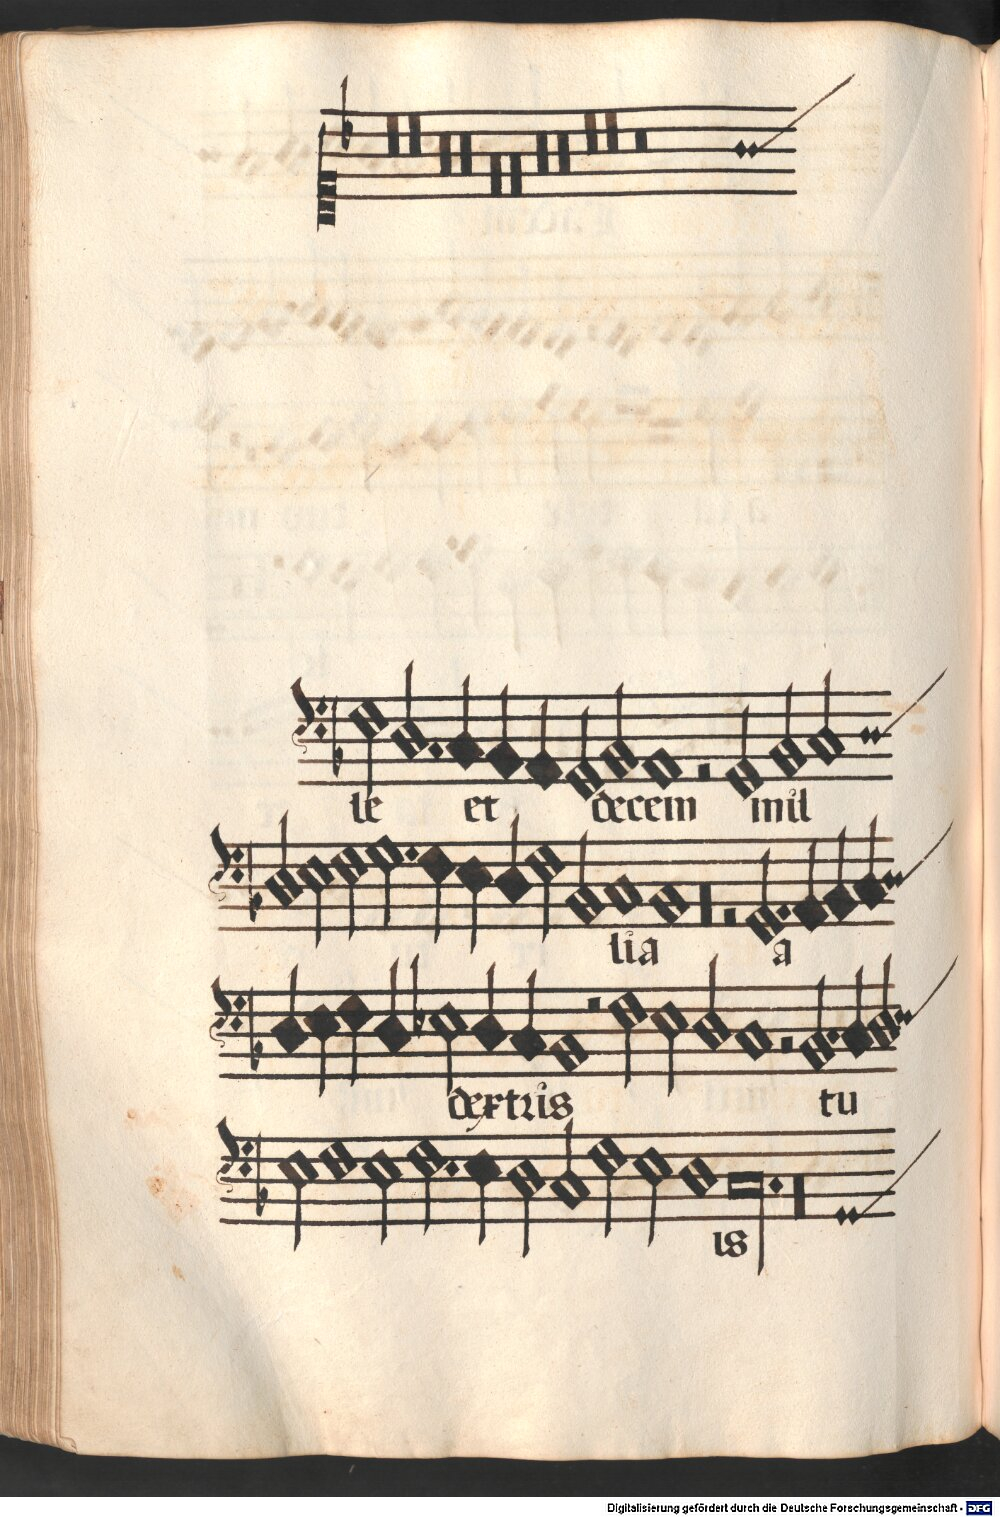 le et decem mil
lia a
dextris tu
is
Digitalisierung gefördert durch die Deutsche Forschungsgemeinschaft - DFG